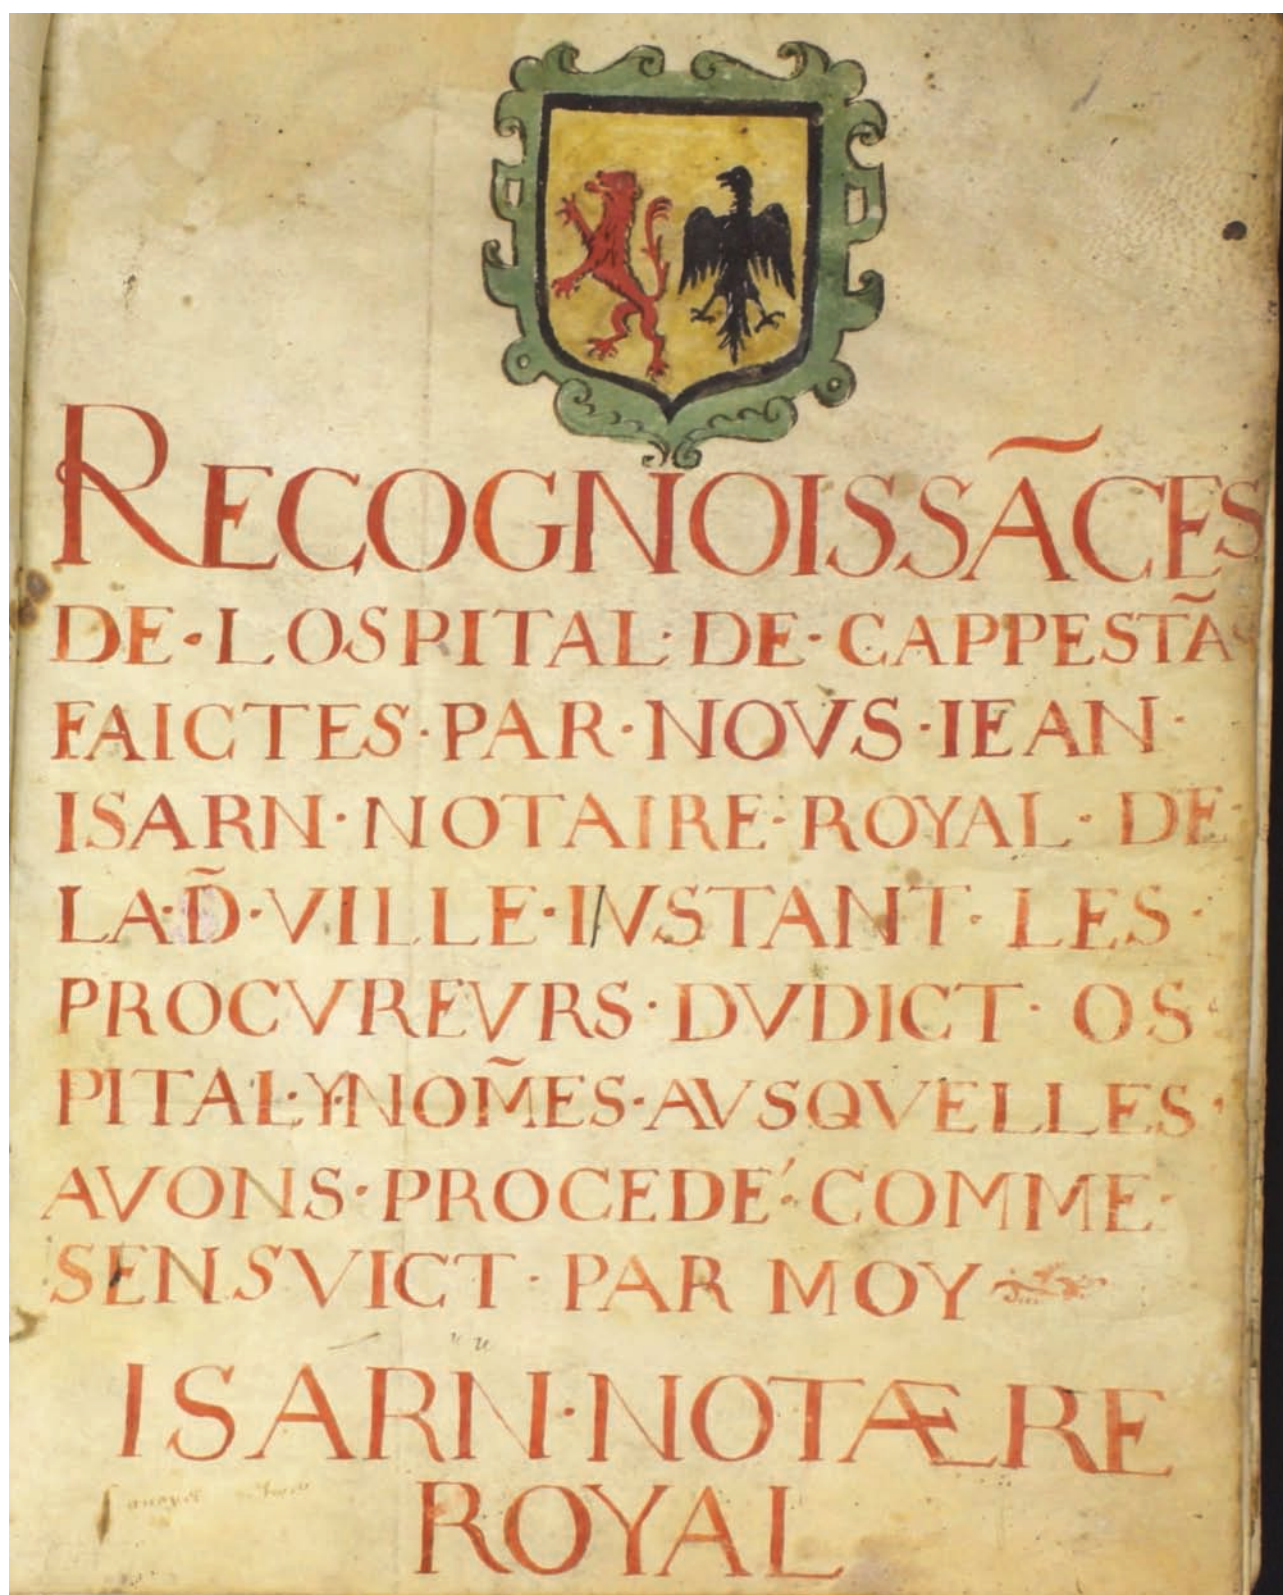 RECOGNOISSÃCES
DE·LOSPITAL·DE·CAPPESTÃ
FAICTES·PAR·NOVS·IEAN·
ISARN·NOTAIRE·ROYAL·DE·
LA·D̃·VILLE·I/VSTANT·LES·
PROCVREVRS·DVDICT·OS·
PITAL·Y·NOM̃ES·AVSQVELLES·
AVONS·PROCEDÉ·COMME·
SENSVICT·PAR MOY
ISARN·NOTÆRE
ROYAL